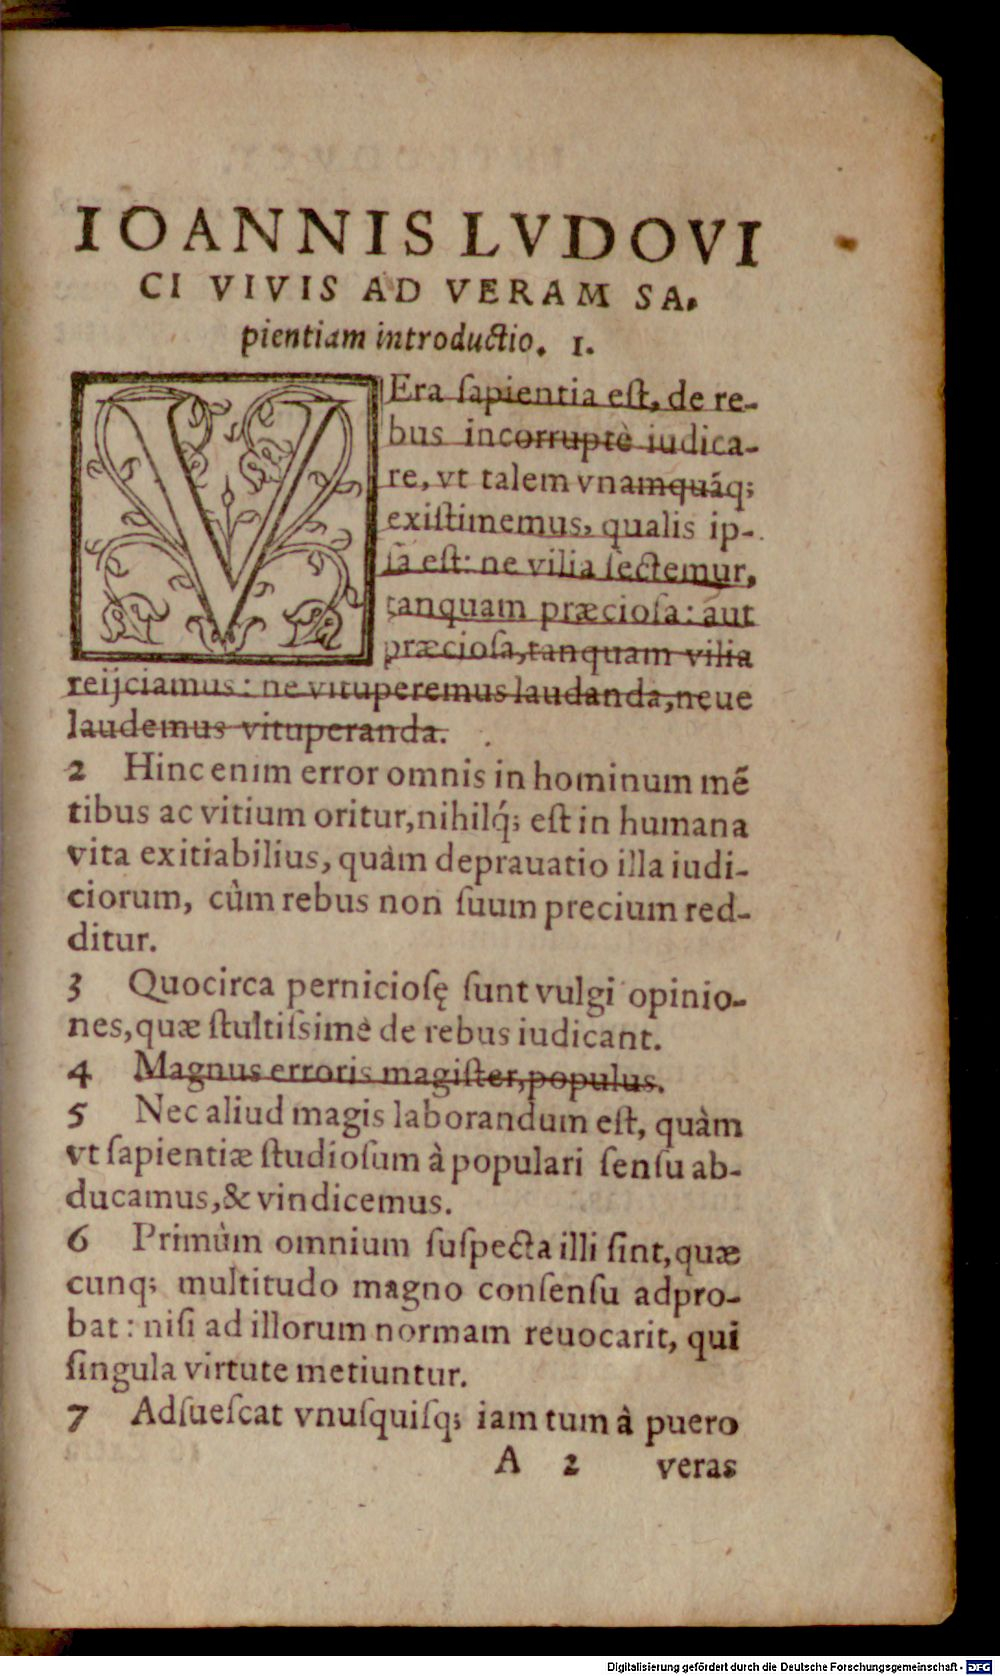 IOANNIS LVDOVI
CI VIVIS AD VERAM SA-
pientiam introductio. 1.
VEra ſapientia eſt, de re-
bus incorruptè iudica-
re, vt talem vnamquāq;
exiſtimemus, qualis ip-
ſa eſt: ne vilia ſectemur,
tanquam præcioſa: aut
præcioſa, tanquam vilia
reijciamus: ne vituperemus laudanda, neue
laudemus vituperanda.
2 Hinc enim error omnis in hominum mē
tibus ac vitium oritur, nihilq́; eſt in humana
vita exitiabilius, quàm deprauatio illa iudi-
ciorum, cùm rebus non ſuum precium red-
ditur.
3 Quocirca pernicioſę ſunt vulgi opinio-
nes, quæ ſtultiſsimè de rebus iudicant.
4 Magnus erroris magiſter, populus.
5 Nec aliud magis laborandum eſt, quàm
vt ſapientiæ ſtudioſum à populari ſenſu ab-
ducamus, & vindicemus.
6 Primùm omnium ſuſpecta illi ſint, quæ
cunq; multitudo magno conſenſu adpro-
bat: niſi ad illorum normam reuocarit, qui
ſingula virtute metiuntur.
7 Adſueſcat vnuſquiſq; iam tum à puero
A 2 veras
Digitalisierung gefördert durch die Deutsche Forschungsgemeinschaft - DFG